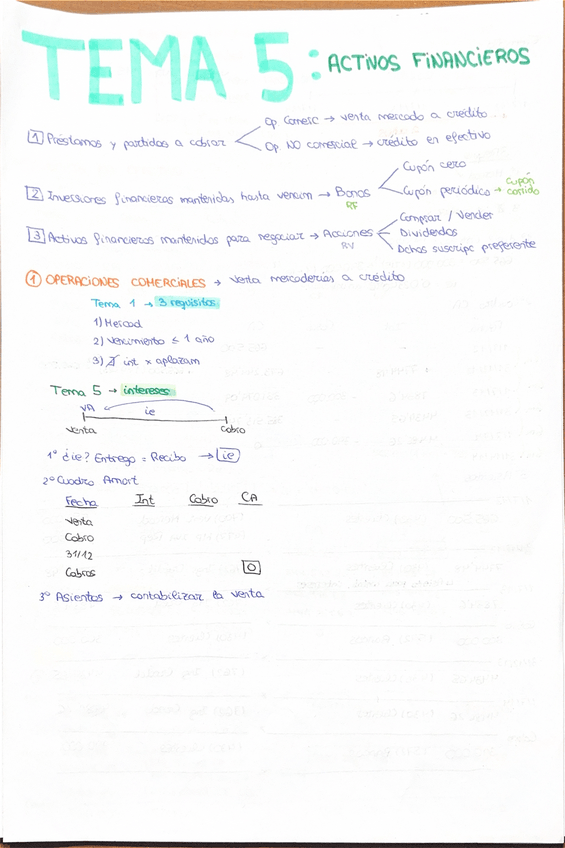 TEMA 5: ACTIVOS FINANCIEROS
Op Comerc → venta mercado a crédito...
1 Préstamos y partidas a cobrar
Op. NO comercial → crédito en efectivo
Cupón cero
2 Inversiones financieras mantenidas hasta vencim → Bonos
RF
Cupón periódico → cupón corrido
3 Activos financieros mantenidos para negociar → Acciones
RV
Comprar / Vender
Dividendos
Dchos suscripc preferente
1 OPERACIONES COMERCIALES → Venta mercaderías a crédito
Tema 1 → 3 requisitos
1) Mercad
2) Vencimiento ≤ 1 año
3) ∄ int x aplazam
Tema 5 → intereses
VA
ie
Venta Cobro
1º ¿ie? Entrego = Recibo → ie
2º Cuadro Amort
Fecha Int Cobro CA
Venta
Cobro
31/12
Cobros 0
3º Asientos → contabilizar la venta